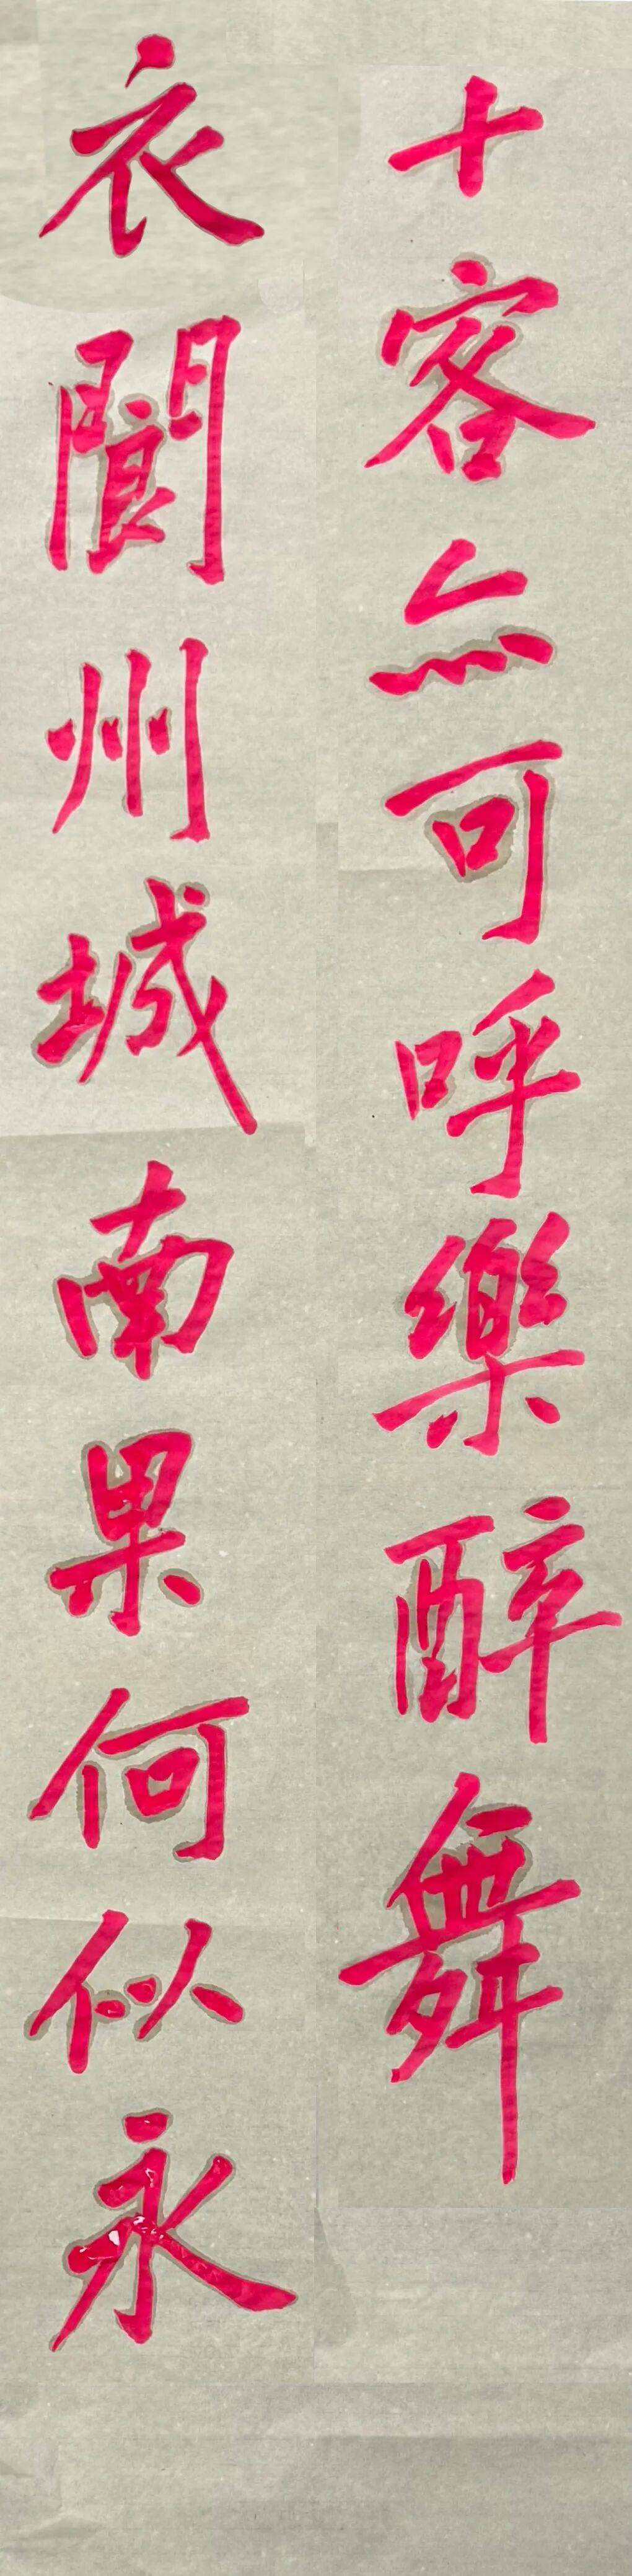 十客無可呼樂醉舞
衣閬州城南果何似永